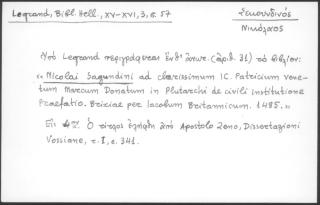 Legrand, Bibl. Hell., XV-XVI, 3, σ. 57
Σεκουνδινός
Νικόλαος
Ὁ Legrand περιγράφει ἐνθ' ἀνωτ. (ἀριθ. 31) τὸ βιβλίον:
« Nicolai Sagundini ad clarissimum IC. Patricium vene-
tum Marcum Donatum in Plutarchi de civili institutione
Praefatio. Brixiae per Iacobum Britannicum. 1485. »
Εἰς 4ον. Ὁ τίτλος ἐλήφθη ἀπὸ Apostolo Zeno, Dissertazioni
Vossiane, τ. I, σ. 341.